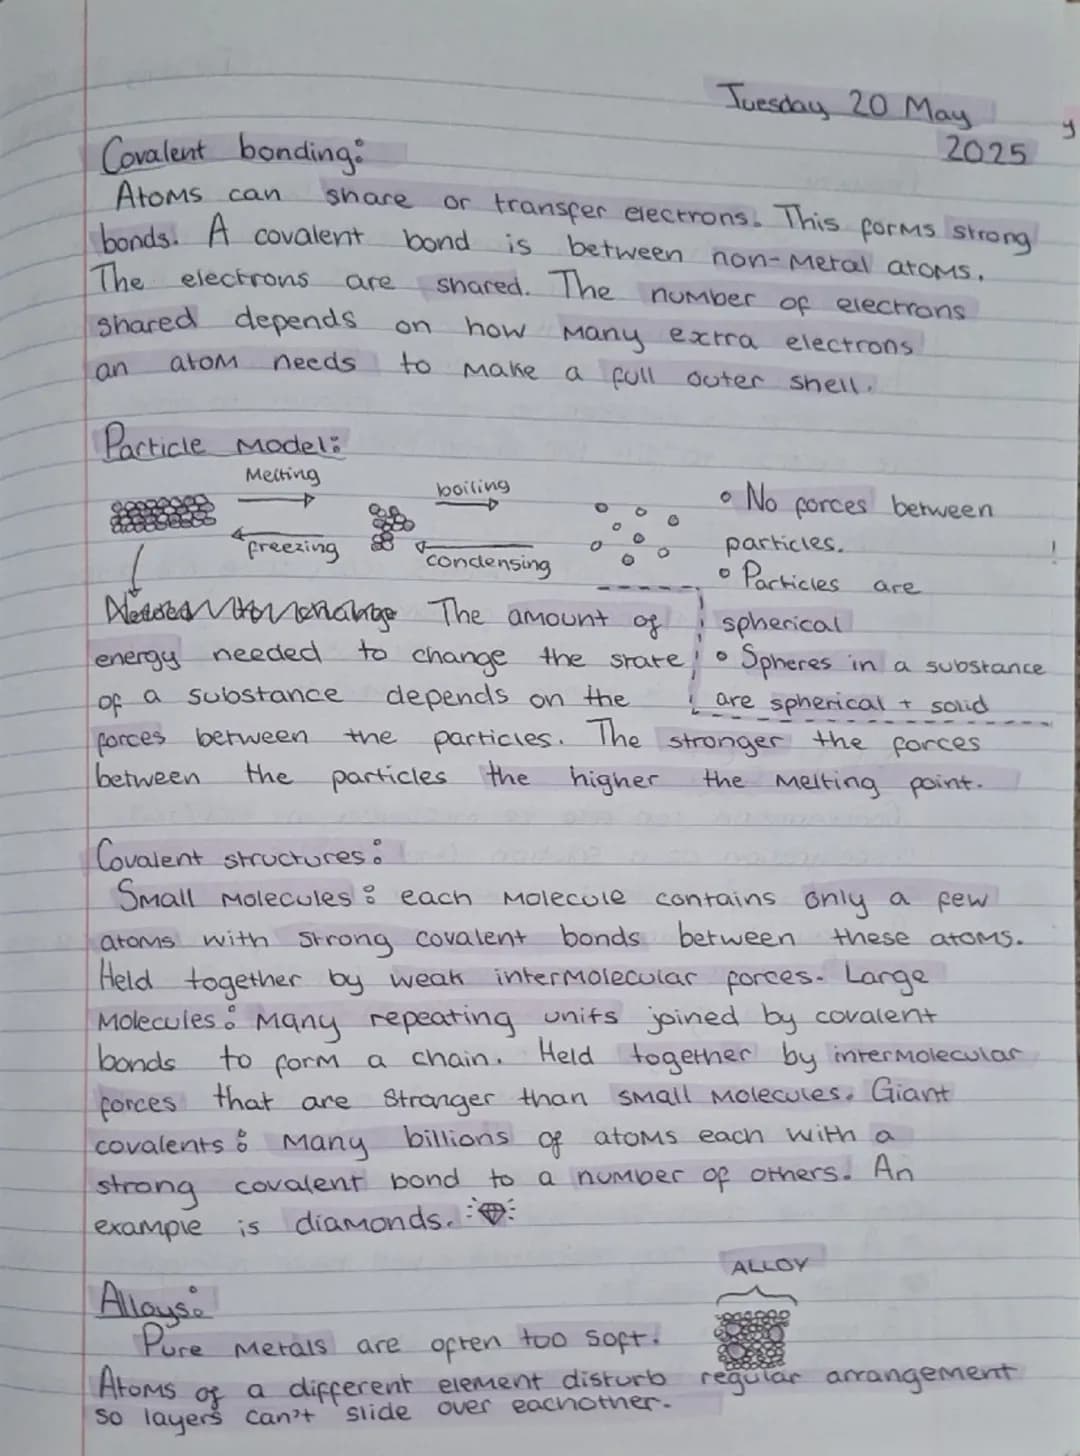 Tuesday 20 May
2025
Covalent bonding:
Atoms can share or transfer electrons. This forms strong
bonds. A covalent bond is between non-metal atoms.
The electrons are shared. The number of electrons
shared depends on how many extra electrons
an atom needs to make a full outer shell.
Particle model:
Melting
boiling
freezing
condensing
• No forces between
particles.
• Particles are
spherical
• Spheres in a substance
are spherical + solid
The amount of
energy needed to change the state
of a substance depends on the
forces between the particles. The stronger the forces
between the particles the higher the melting point.
Covalent structures:
Small molecules: each molecule contains only a few
atoms with strong covalent bonds between these atoms.
Held together by weak intermolecular forces. Large
molecules: Many repeating units joined by covalent
bonds to form a chain. Held together by intermolecular
forces that are stronger than small molecules. Giant
covalents: Many billions of atoms each with a
strong covalent bond to a number of others. An
example is diamonds.
ALLOY
Alloys:
Pure metals are often too soft.
Atoms of a different element disturb regular arrangement
so layers can't slide over eachother.